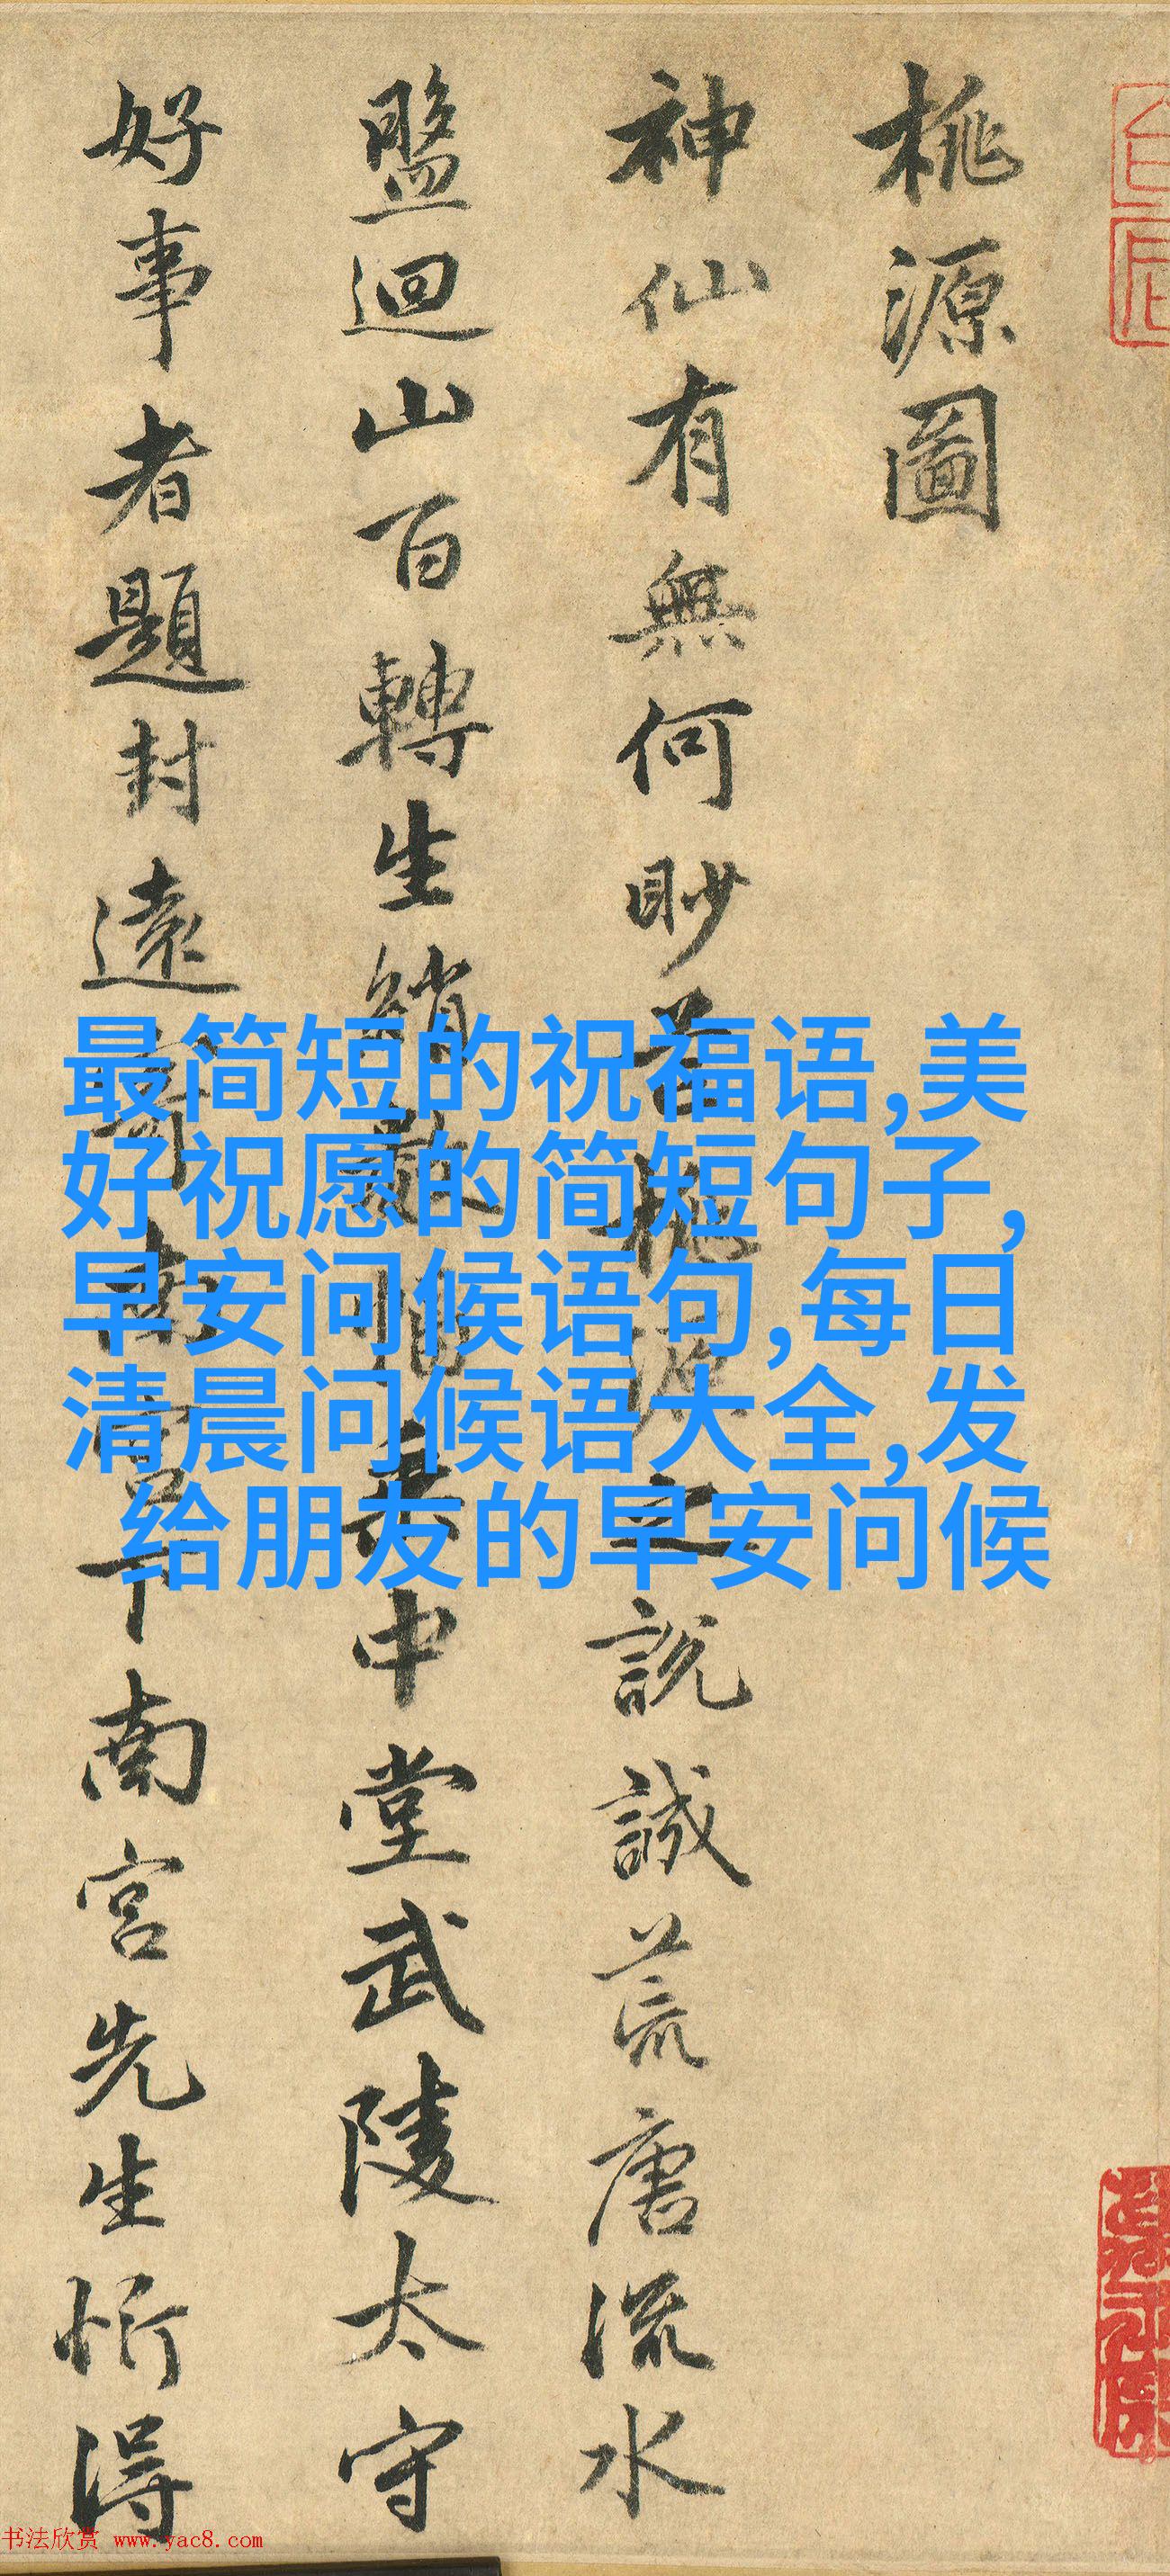 桃源圖
神仙有無何眇芒桃源之說誠荒唐流水
盤迴山百轉生綃數幅垂中堂武陵太守
好事者題封遠寄南宮下南宮先生忻得
最简短的祝福语,美
好祝愿的简短句子,
早安问候语句,每日
清晨问候语大全,发
给朋友的早安问候
书法欣赏 www.yac8.com